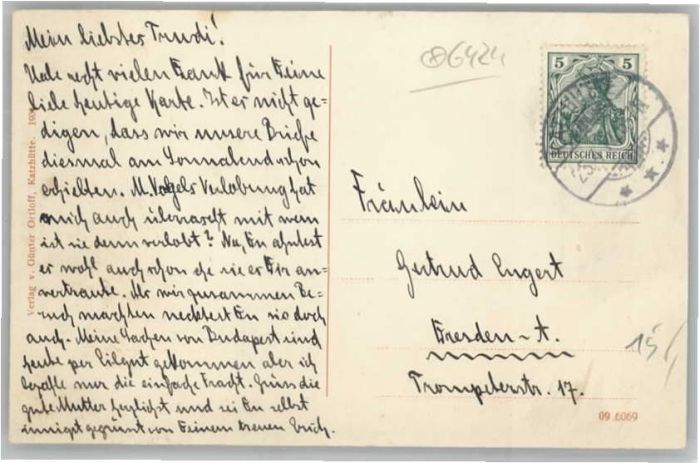 Mein liebster Trudi!
Habe recht vielen Dank für Deine
liebe heutige Karte. Ist er nicht ge=
digen, dass wir unsere Briefe
diesmal am Sonnabend schon
erhielten. M. Vogels Verlobung hat
mich auch überrascht mit wem
ist sie denn verlobt? Na, Du ahntest
er wohl auch schon ehe sie er Dir an=
vertraute. Als wir zusammen Be=
such machten necktest Du sie doch
auch. Meine Sachen von Budapest sind
heute per Eilgut gekommen aber ich
bezahle nur die einfache Fracht. Grüss die
gute Mutter herzlichst und sei Du selbst
innigst gegrüsst von Deinem treuen Erich.
Verlag v. Günter Ortloff, Katzhütte.
6424
5 5
DEUTSCHES REICH
Fräulein
Gertrud Engert
Dresden-A.
Trompeterstr. 17.
15
09 6069